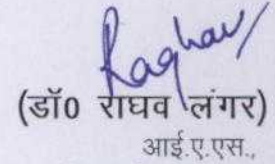 Raghav
(डॉ0 राघव लंगर)
आई.ए.एस.,